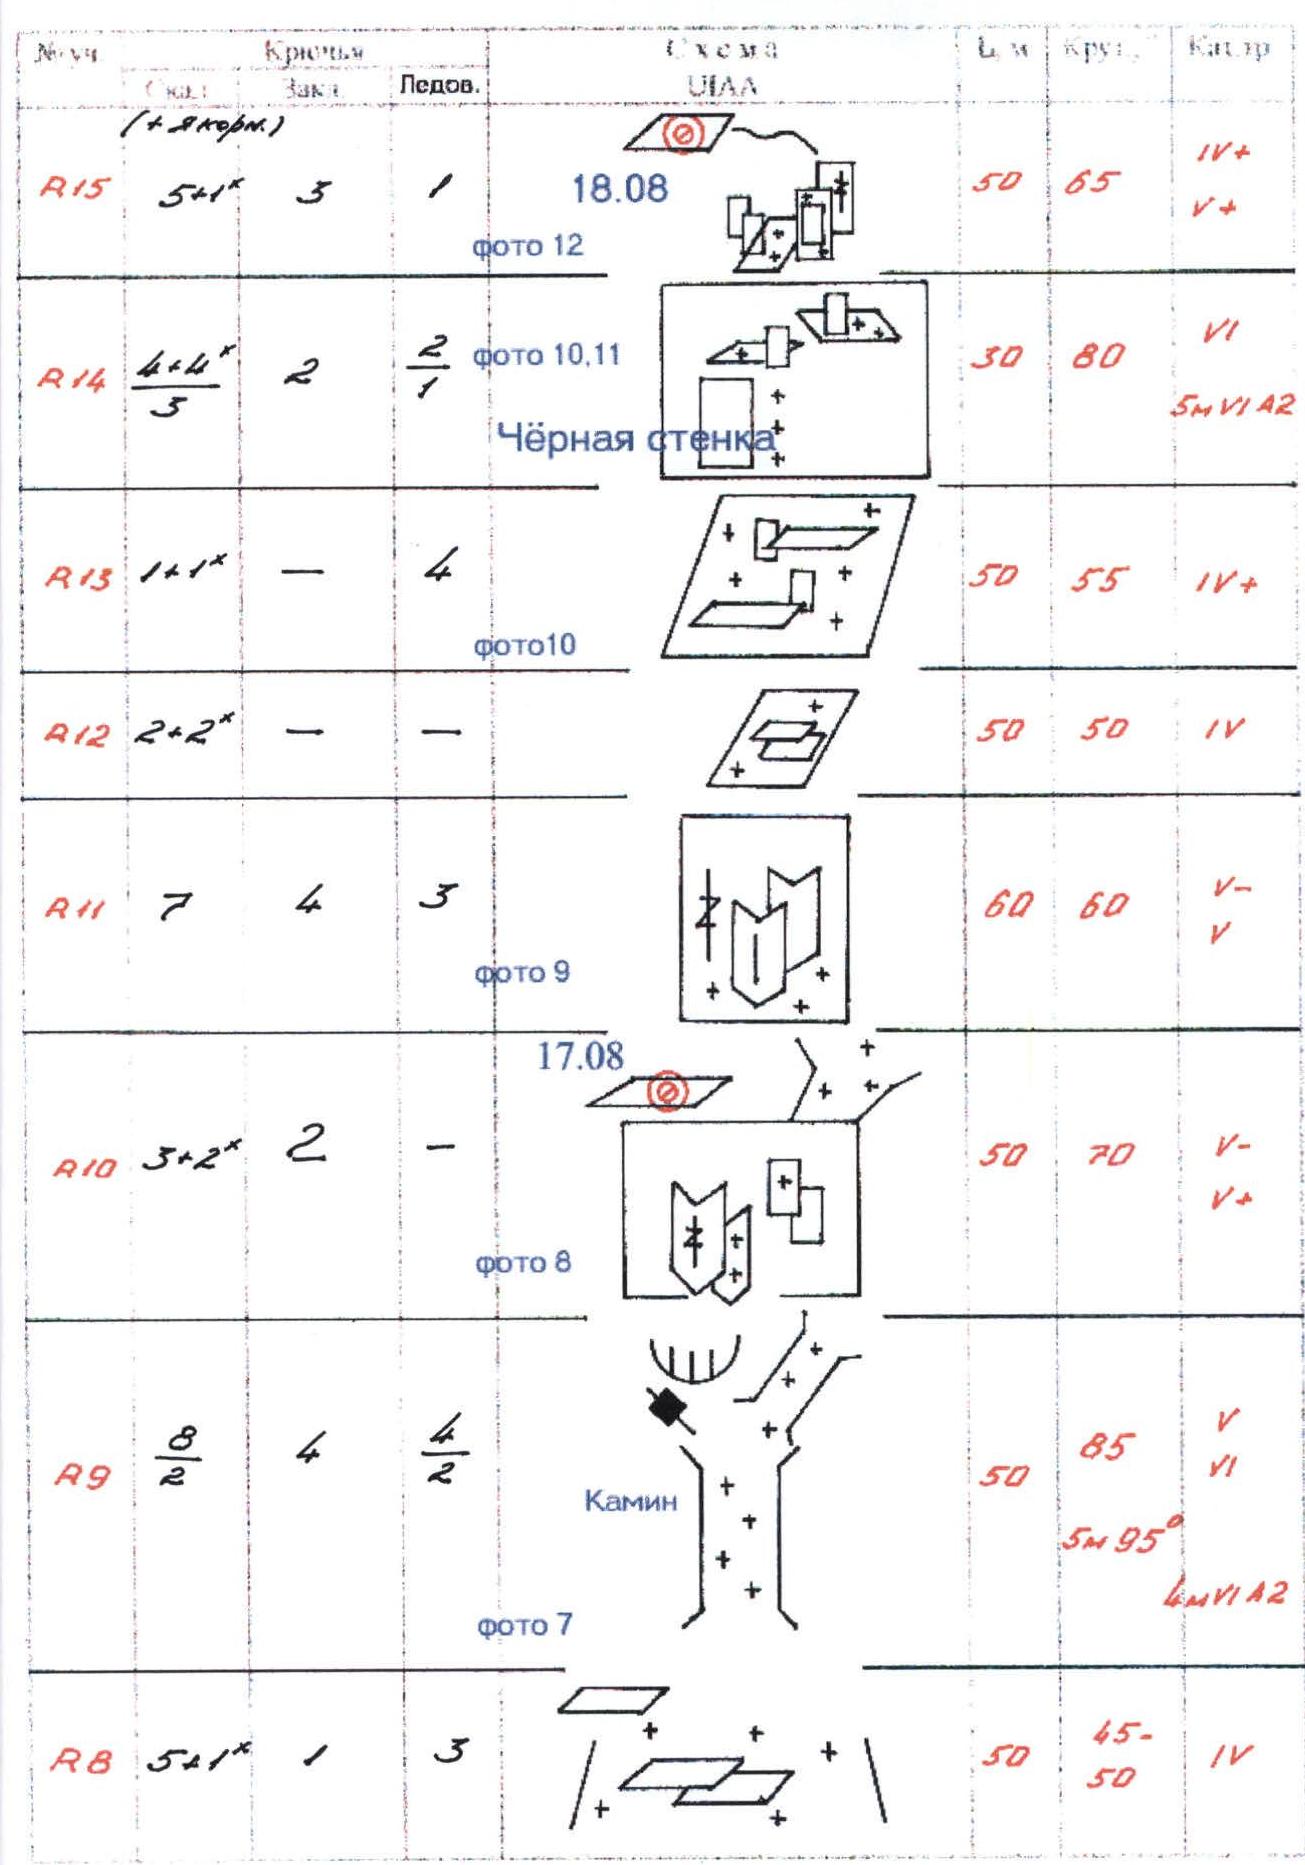 № уч. Крючья Схема L, м Крут.,° Кат.тр
Скал. Закл. Ледов. UIAA
(+ якорн.)
R15 5+1ˣ 3 1 18.08 50 65 IV+
V+
фото 12
R14 4+4ˣ/3 2 2/1 фото 10,11 30 80 VI
5м VI A2
Чёрная стенка
R13 1+1ˣ — 4 50 55 IV+
фото10
R12 2+2ˣ — — 50 50 IV
R11 7 4 3 60 60 V-
V
фото 9
17.08
R10 3+2ˣ 2 — 50 70 V-
V+
фото 8
R9 8/2 4 4/2 50 85 V
VI
Камин
5м 95°
4м VI A2
фото 7
R8 5+1ˣ 1 3 50 45-
50 IV